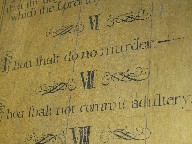 which the Lord
VI
Thou shalt do no murder.
VII
Thou shalt not commit adultery.
VIII